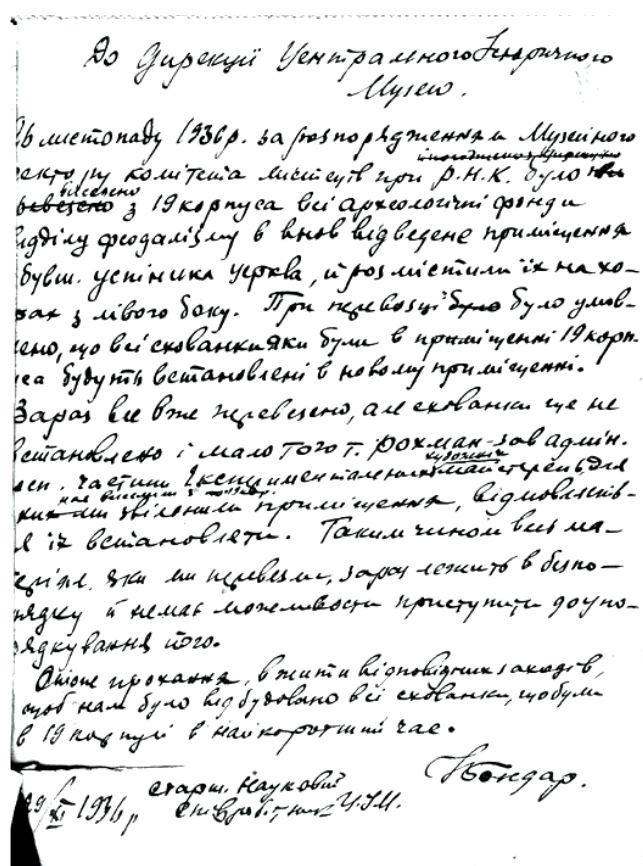 До Дирекції Центрального Історичного
Музею.
26 листопаду 1936 р. за розпорядженням Музейного
сектору комітета мистецтв при Р.Н.К. було
вивезено
вивезено з 19 корпуса всі археологічні фонди
відділу феодалізму в внов відведене приміщення
бувш. успіника церква, й розмістили їх на хо-
рах з лівого боку. При перевозці було було умов-
лено, що всі схованки яки були в приміщенні 19 корп-
уса будуть встановлені в новому приміщенні.
Зараз все вже перевезено, але схованки ще не
встановлено і мало того т. Рохман - зав адмін.
художніх
частини Експериментальних майстерень, для
нас виселили з
яких ми звільнили приміщення, відмовляєть-
ся їх встановляти. Таким чином весь ма-
теріял, яки ми перевезли, зараз лежить в безпо-
рядку й немає можливости приступити до упо-
рядкування його.
Отже прохання, вжити відповідних заходів,
щоб нам було відбудовано всі схованки, що були
в 19 корпусі в найкоротший час.
НБондар.
29/XI 1936 р
старш. Науковий
співробітник Ц.І.М.